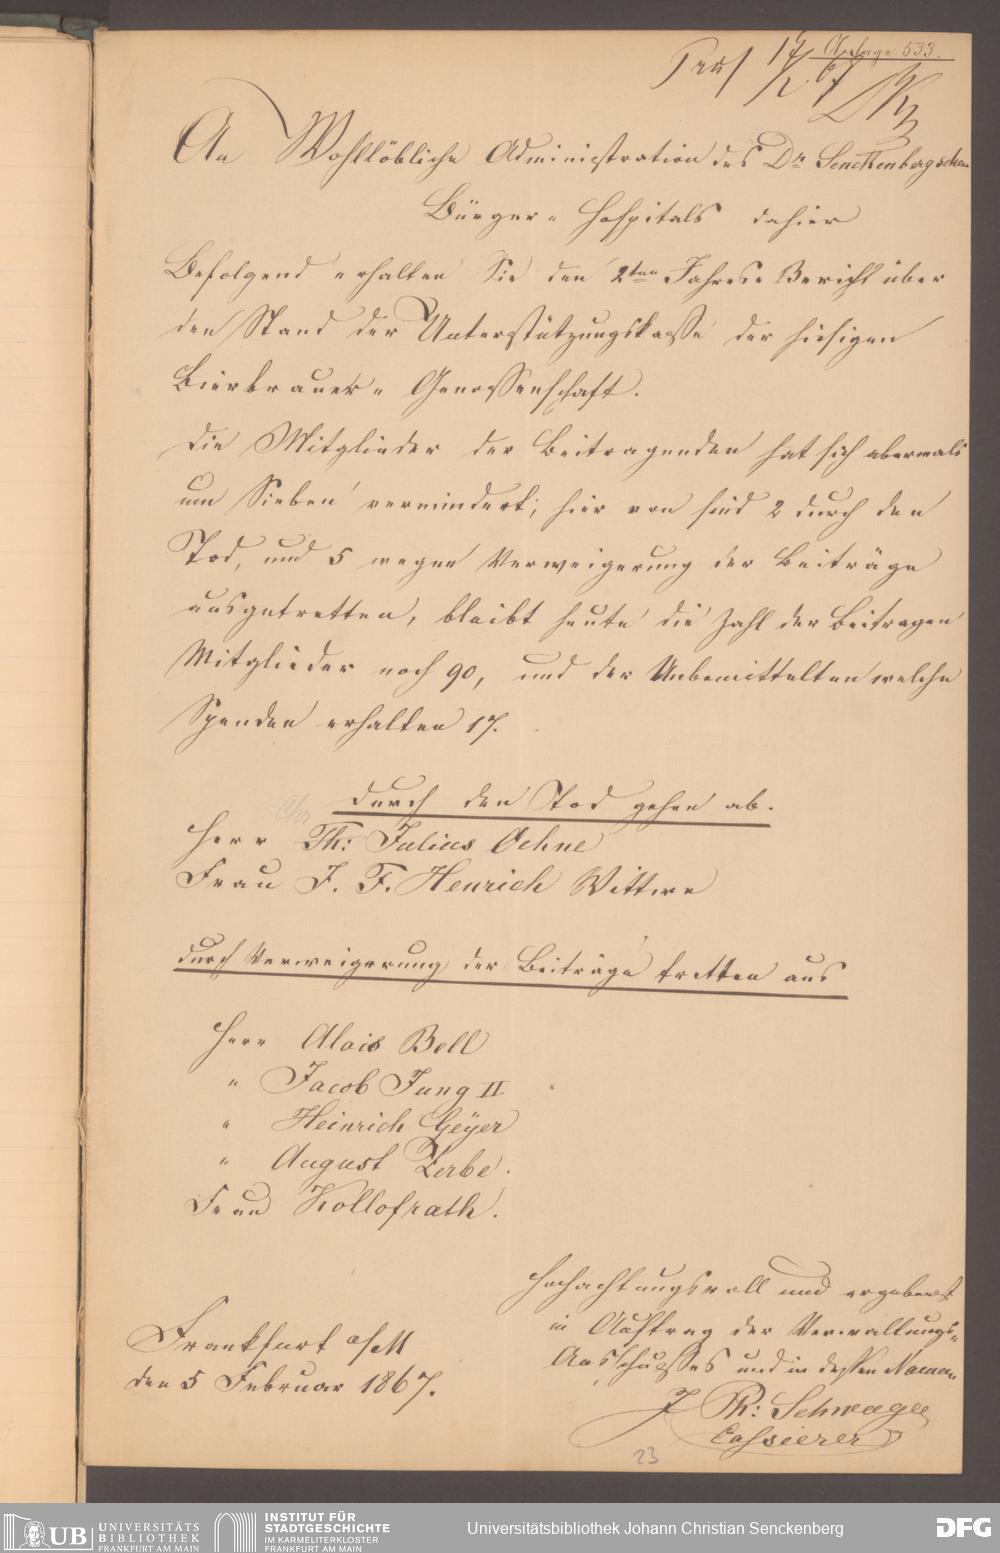 Anlage 533.
Präs 14/2 67
An Wohllöbliche Administration des Dr. Senckenbergschen
Bürger- Hospitals dahier
Befolgend erhalten Sie den 2ten Jahres- Bericht über
den Stand der Unterstützungskasse der hiesigen
Bierbrauer- Genossenschaft.
Die Mitglieder der Beitragenden hat sich abermals
um Sieben vermindert; hier von sind 2 durch den
Tod, und 5 wegen Verweigerung der Beiträge
ausgetretten, bleibt heute die Zahl der Beitragen
Mitglieder noch 90, und der Unbemittelten welche
Spenden erhalten 17.
Durch den Tod gehen ab.
Herr Th: Julius Oehne
Frau J. F. Henrich Wittwe
durch Verweigerung der Beiträge tretten aus
Herr Alois Bell
" Jacob Jung II
" Heinrich Geÿer
" August Zerbe.
Frau Kollofrath.
Hochachtungsvoll und ergebenst
in Auftrag der Verwaltungs-
Ausschusses und in dessen Namen
J Ph: Schwager
Cassierer
Frankfurt a/M
den 5 Februar 1867.
23
UB UNIVERSITÄTS
BIBLIOTHEK
FRANKFURT AM MAIN
INSTITUT FÜR
STADTGESCHICHTE
IM KARMELITERKLOSTER
FRANKFURT AM MAIN
Universitätsbibliothek Johann Christian Senckenberg
DFG